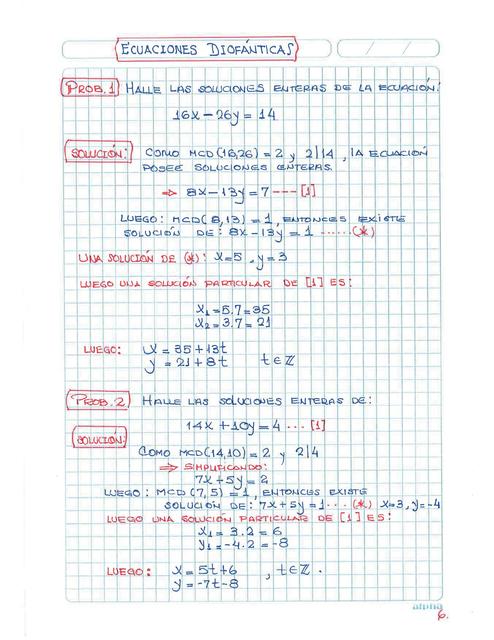 ECUACIONES DIOFÁNTICAS
PROB. 1 HALLE LAS SOLUCIONES ENTERAS DE LA ECUACIÓN:
16x - 26y = 14
SOLUCIÓN: COMO MCD(16,26) = 2 y 2|14 , LA ECUACIÓN
POSEE SOLUCIONES ENTERAS.
⇒ 8x - 13y = 7 --- [1]
LUEGO: MCD(8,13) = 1, ENTONCES EXISTE
SOLUCIÓN DE: 8x - 13y = 1 ······(*)
UNA SOLUCIÓN DE (*): x=5 , y=3
LUEGO UNA SOLUCIÓN PARTICULAR DE [1] ES:
x₁ = 5.7 = 35
x₂ = 3.7 = 21
LUEGO: x = 35 + 13t
y = 21 + 8t t ∈ ℤ
PROB. 2 HALLE LAS SOLUCIONES ENTERAS DE:
14x + 10y = 4 ··· [1]
SOLUCIÓN:
COMO MCD(14,10) = 2 y 2|4
⇒ SIMPLIFICANDO:
7x + 5y = 2
LUEGO: MCD(7,5) = 1, ENTONCES EXISTE
SOLUCIÓN DE: 7x + 5y = 1 ··· (*) x=3, y=-4
LUEGO UNA SOLUCIÓN PARTICULAR DE [1] ES:
x₁ = 3.2 = 6
y₁ = -4.2 = -8
LUEGO: x = 5t + 6 , t ∈ ℤ .
y = -7t - 8
alpha
6.